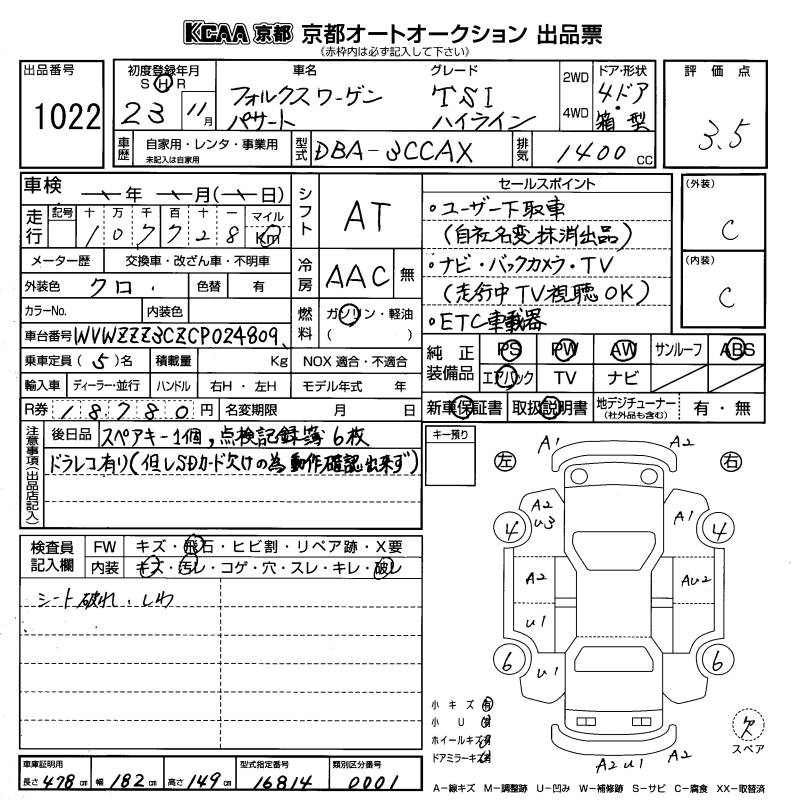 KCAA 京都 京都オートオークション 出品票
(赤枠内は必ず記入して下さい)
出品番号
1022
初度登録年月
S H R
23 11月
車名
フォルクスワーゲン
パサート
グレード
TSI
ハイライン
2WD
4WD
ドア・形状
4ドア
箱型
評価点
3.5
車歴
自家用・レンタ・事業用
未記入は自家用
型式
DBA-3CCAX
排気
1400 CC
車検
年 月( 日)
走行
記号 十 万 千 百 十 一 マイル
107728 Km
メーター歴 交換車・改ざん車・不明車
外装色 クロ 色替 有
カラーNo. 内装色
車台番号 WVWZZZ3CZCP024809
乗車定員 (5)名 積載量 Kg
輸入車 ディーラー・並行 ハンドル 右H・左H
R券 18780円 名変期限 月 日
シフト AT
冷房 AAC 無
燃料 ガソリン・軽油
( )
NOX 適合・不適合
モデル年式 年
セールスポイント
・ユーザー下取車
(自社名変抹消出品)
・ナビ・バックカメラ・TV
(走行中TV視聴OK)
・ETC車載器
(外装)
C
(内装)
C
純正装備品
PS PW AW サンルーフ ABS
エアバック TV ナビ
新車保証書 取扱説明書 地デジチューナー(社外品も含む) 有・無
注意事項(出品店記入)
後日品 スペアキー1個,点検記録簿6枚
ドラレコ有り(但しSDカード欠けの為動作確認出来ず)
キー預り
検査員記入欄
FW キズ・飛石・ヒビ割・リペア跡・X要
内装 キズ・汚レ・コゲ・穴・スレ・キレ・破レ
シート破れ.しわ
左 右
A1 A2
A2 U3
A1
4 4
A2
AU2
U1
6 6
U1
A2 U1 A2
小キズ 有
小U 有
ホイールキズ 有
ドアミラーキズ 有
欠
スペア
車庫証明用
長さ 478cm 幅 182cm 高さ 149cm
型式指定番号
16814
類別区分番号
0001
A-線キズ M-調整跡 U-凹み W-補修跡 S-サビ C-腐食 XX-取替済